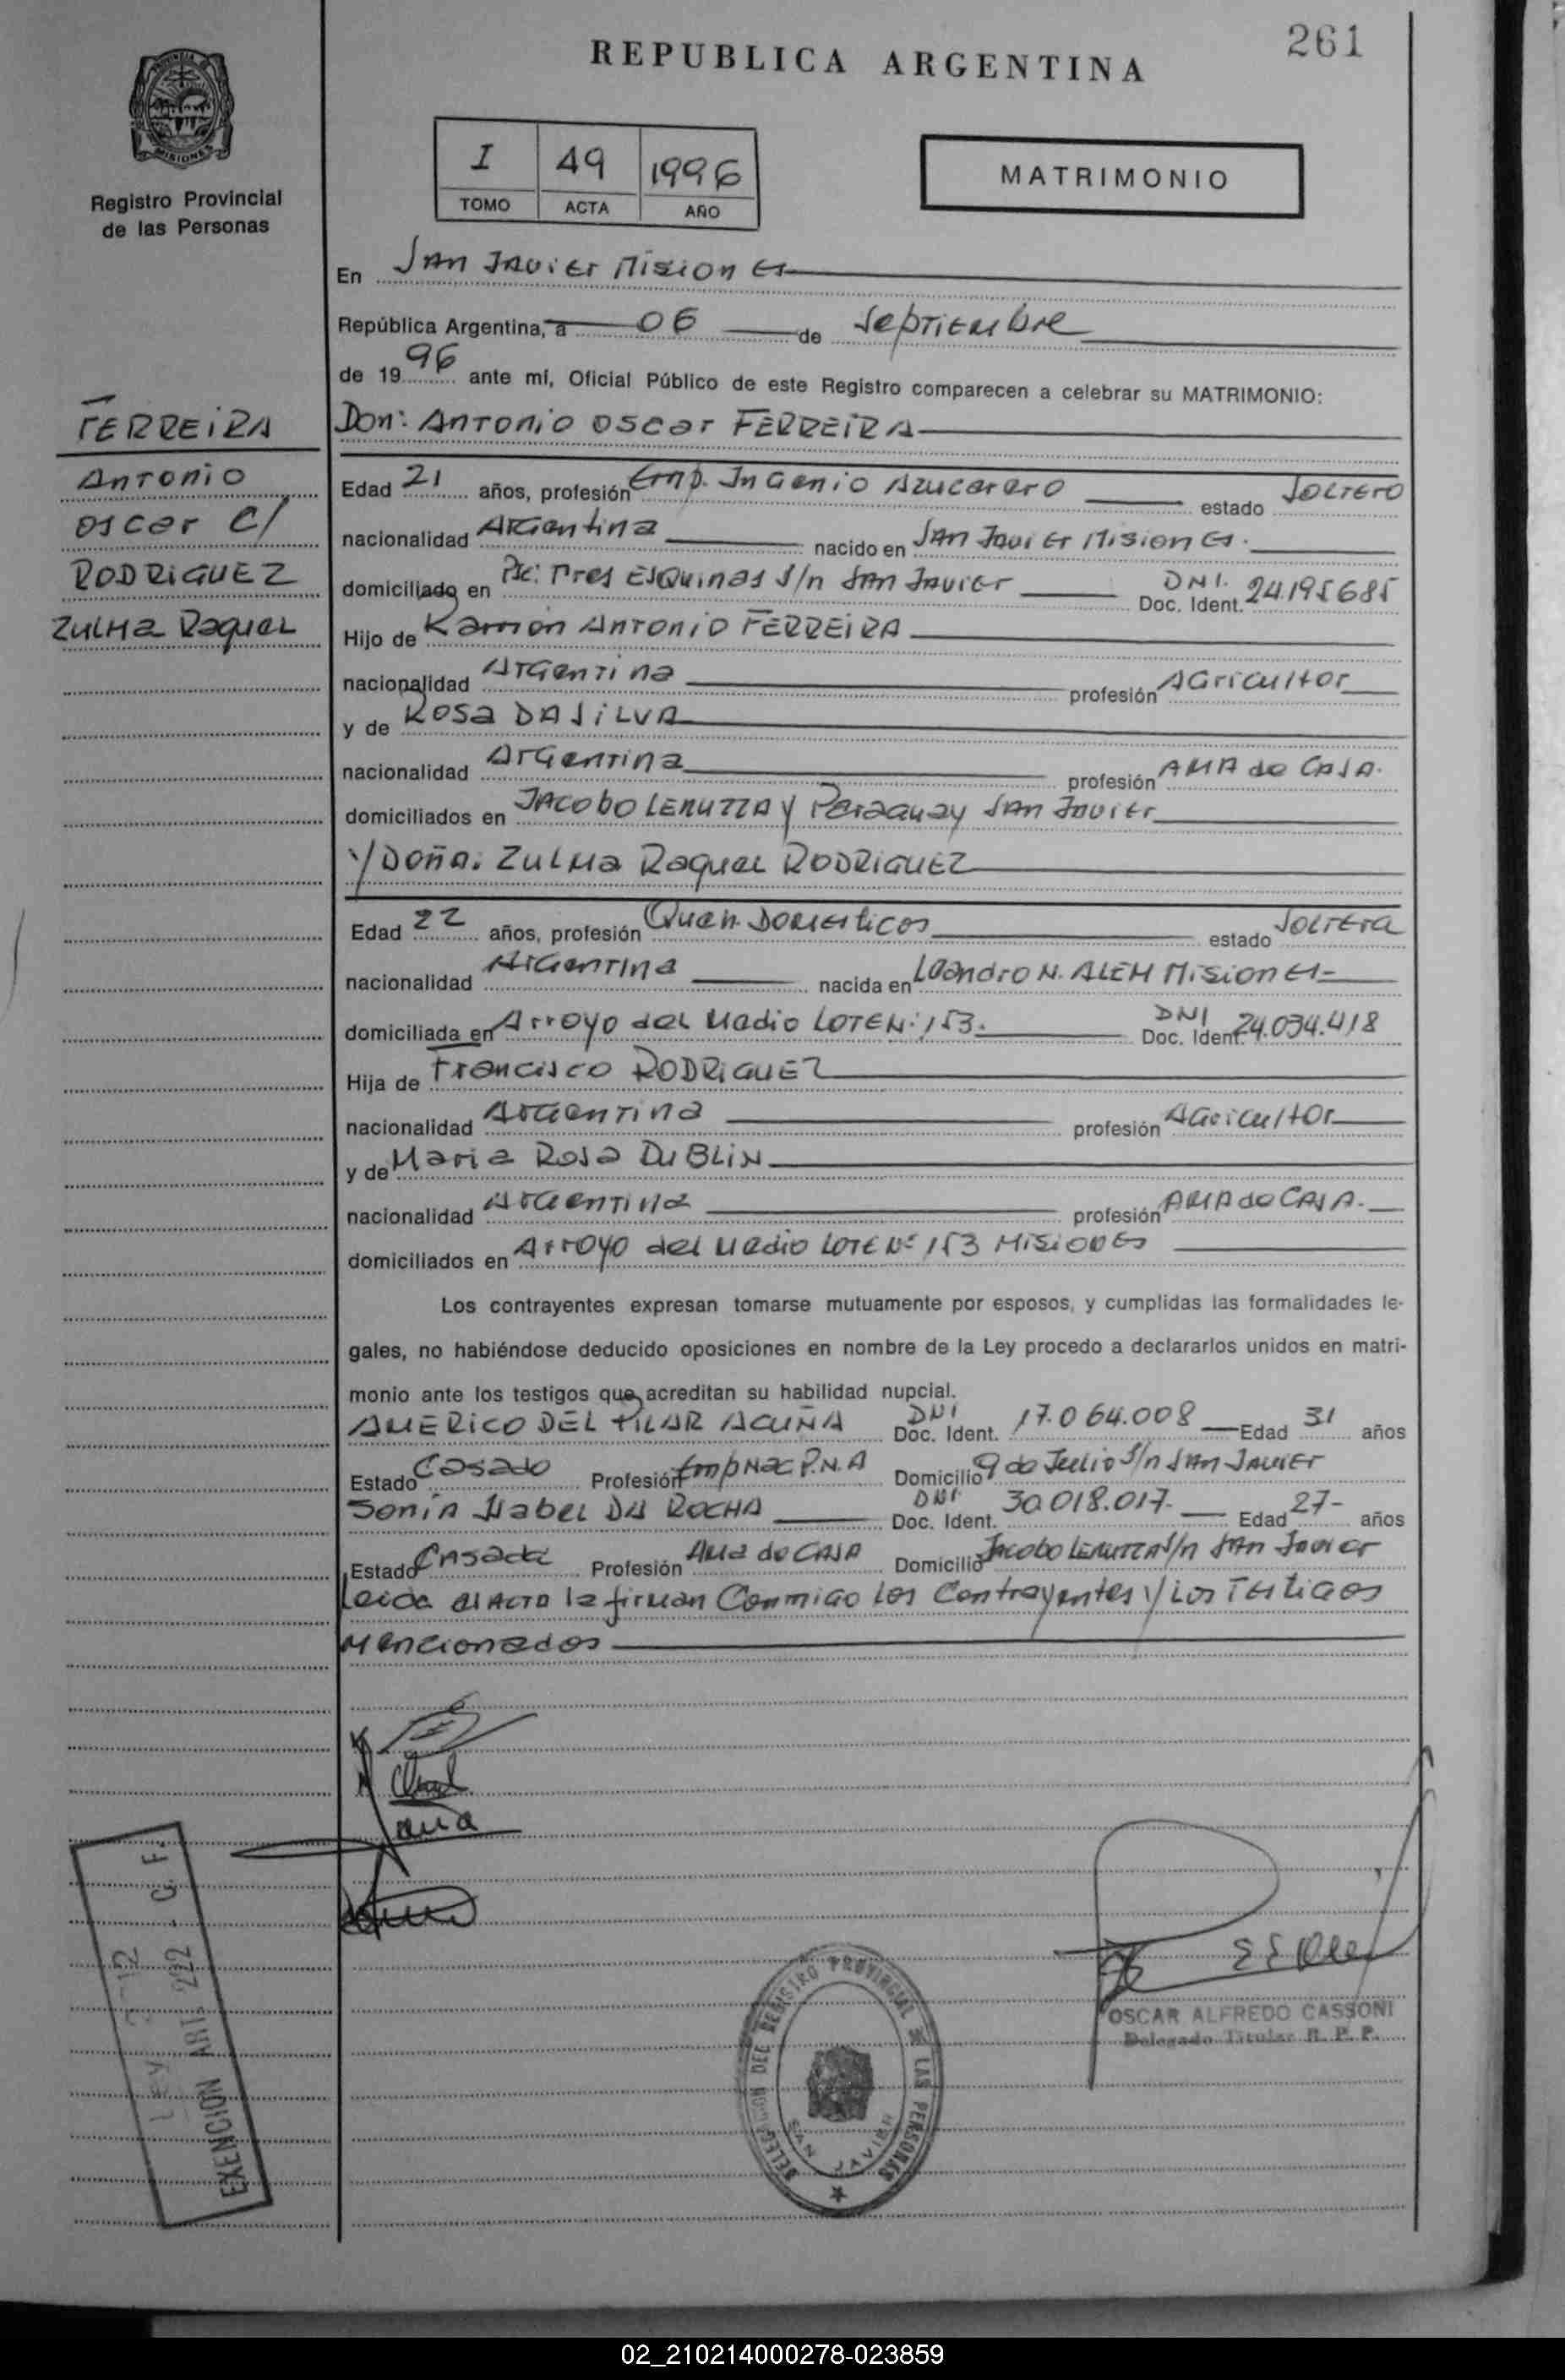 261
REPUBLICA ARGENTINA
MISIONES
Registro Provincial
de las Personas
I 49 1996
TOMO ACTA AÑO
MATRIMONIO
En San Javier Misiones
República Argentina, a 06 de Septiembre
de 1996 ante mí, Oficial Público de este Registro comparecen a celebrar su MATRIMONIO:
FERREIRA
Antonio
Oscar C/
RODRIGUEZ
Zulma Raquel
Don: Antonio Oscar FERREIRA
Edad 21 años, profesión Emp. Ingenio Azucarero estado Soltero
nacionalidad Argentina nacido en San Javier Misiones.
domiciliado en Pje: Tres Esquinas S/n San Javier DNI. Doc. Ident. 24.195685
Hijo de Ramon Antonio FERREIRA
nacionalidad Argentina profesión Agricultor
y de Rosa DA SILVA
nacionalidad Argentina profesión Ama de Casa.
domiciliados en Jacobo y Paraguay San Javier
Y Doña. Zulma Raquel RODRIGUEZ
Edad 22 años, profesión Domesticos estado Soltera
nacionalidad Argentina nacida en Leandro N. ALEM Misiones
domiciliada en Arroyo del Medio LOTE N: 153. DNI Doc. Ident. 24.034.418
Hija de Francisco RODRIGUEZ
nacionalidad Argentina profesión Agricultor
y de Maria Rosa DUBLIN
nacionalidad Argentina profesión Ama de Casa.
domiciliados en Arroyo del Medio LOTE Nº 153 Misiones
Los contrayentes expresan tomarse mutuamente por esposos, y cumplidas las formalidades le-
gales, no habiéndose deducido oposiciones en nombre de la Ley procedo a declararlos unidos en matri-
monio ante los testigos que acreditan su habilidad nupcial.
AMERICO DEL PILAR ACUÑA DNI Doc. Ident. 17.064.008 Edad 31 años
Estado Casado Profesión Emp Nac P.N.A Domicilio 9 de Julio S/n San Javier
Sonia Isabel DA ROCHA DNI Doc. Ident. 30.018.017. Edad 27 años
Estado Casada Profesión Ama de Casa Domicilio Jacobo S/n San Javier
Leida el Acta la firman Conmigo los Contrayentes y Los Testigos
Mencionados
EXENCION ART. 222 - C. F.
LEY
DELEGACION DEL REGISTRO PROVINCIAL DE LAS PERSONAS
SAN JAVIER
OSCAR ALFREDO CASSONI
Delegado Titular R. P. P.
02_210214000278-023859